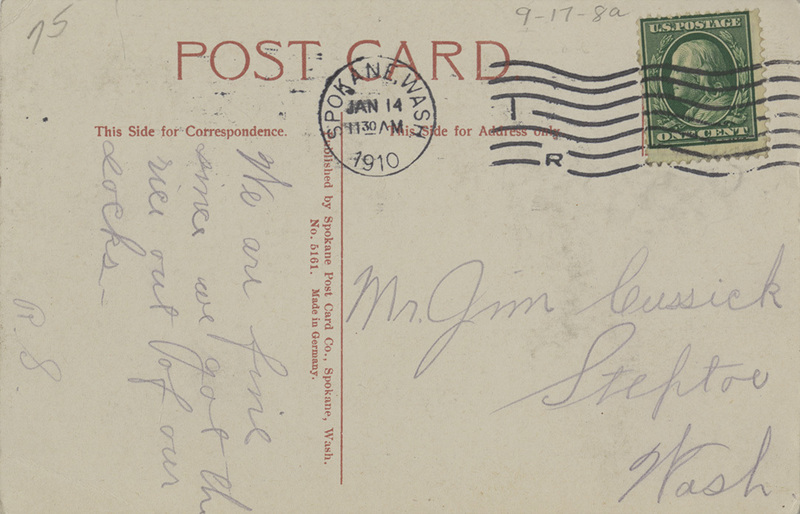 75
9-17-8a
POST CARD
U.S. POSTAGE
ONE CENT
SPOKANE, WASH.
JAN 14
1130 AM
1910
R
This Side for Correspondence.
This Side for Address only.
We are fine
since we got the
rice out of our
socks-
P. S.
Published by Spokane Post Card Co., Spokane, Wash.
No. 5161. Made in Germany.
Mr. Jim Cussick
Steptoe
Wash